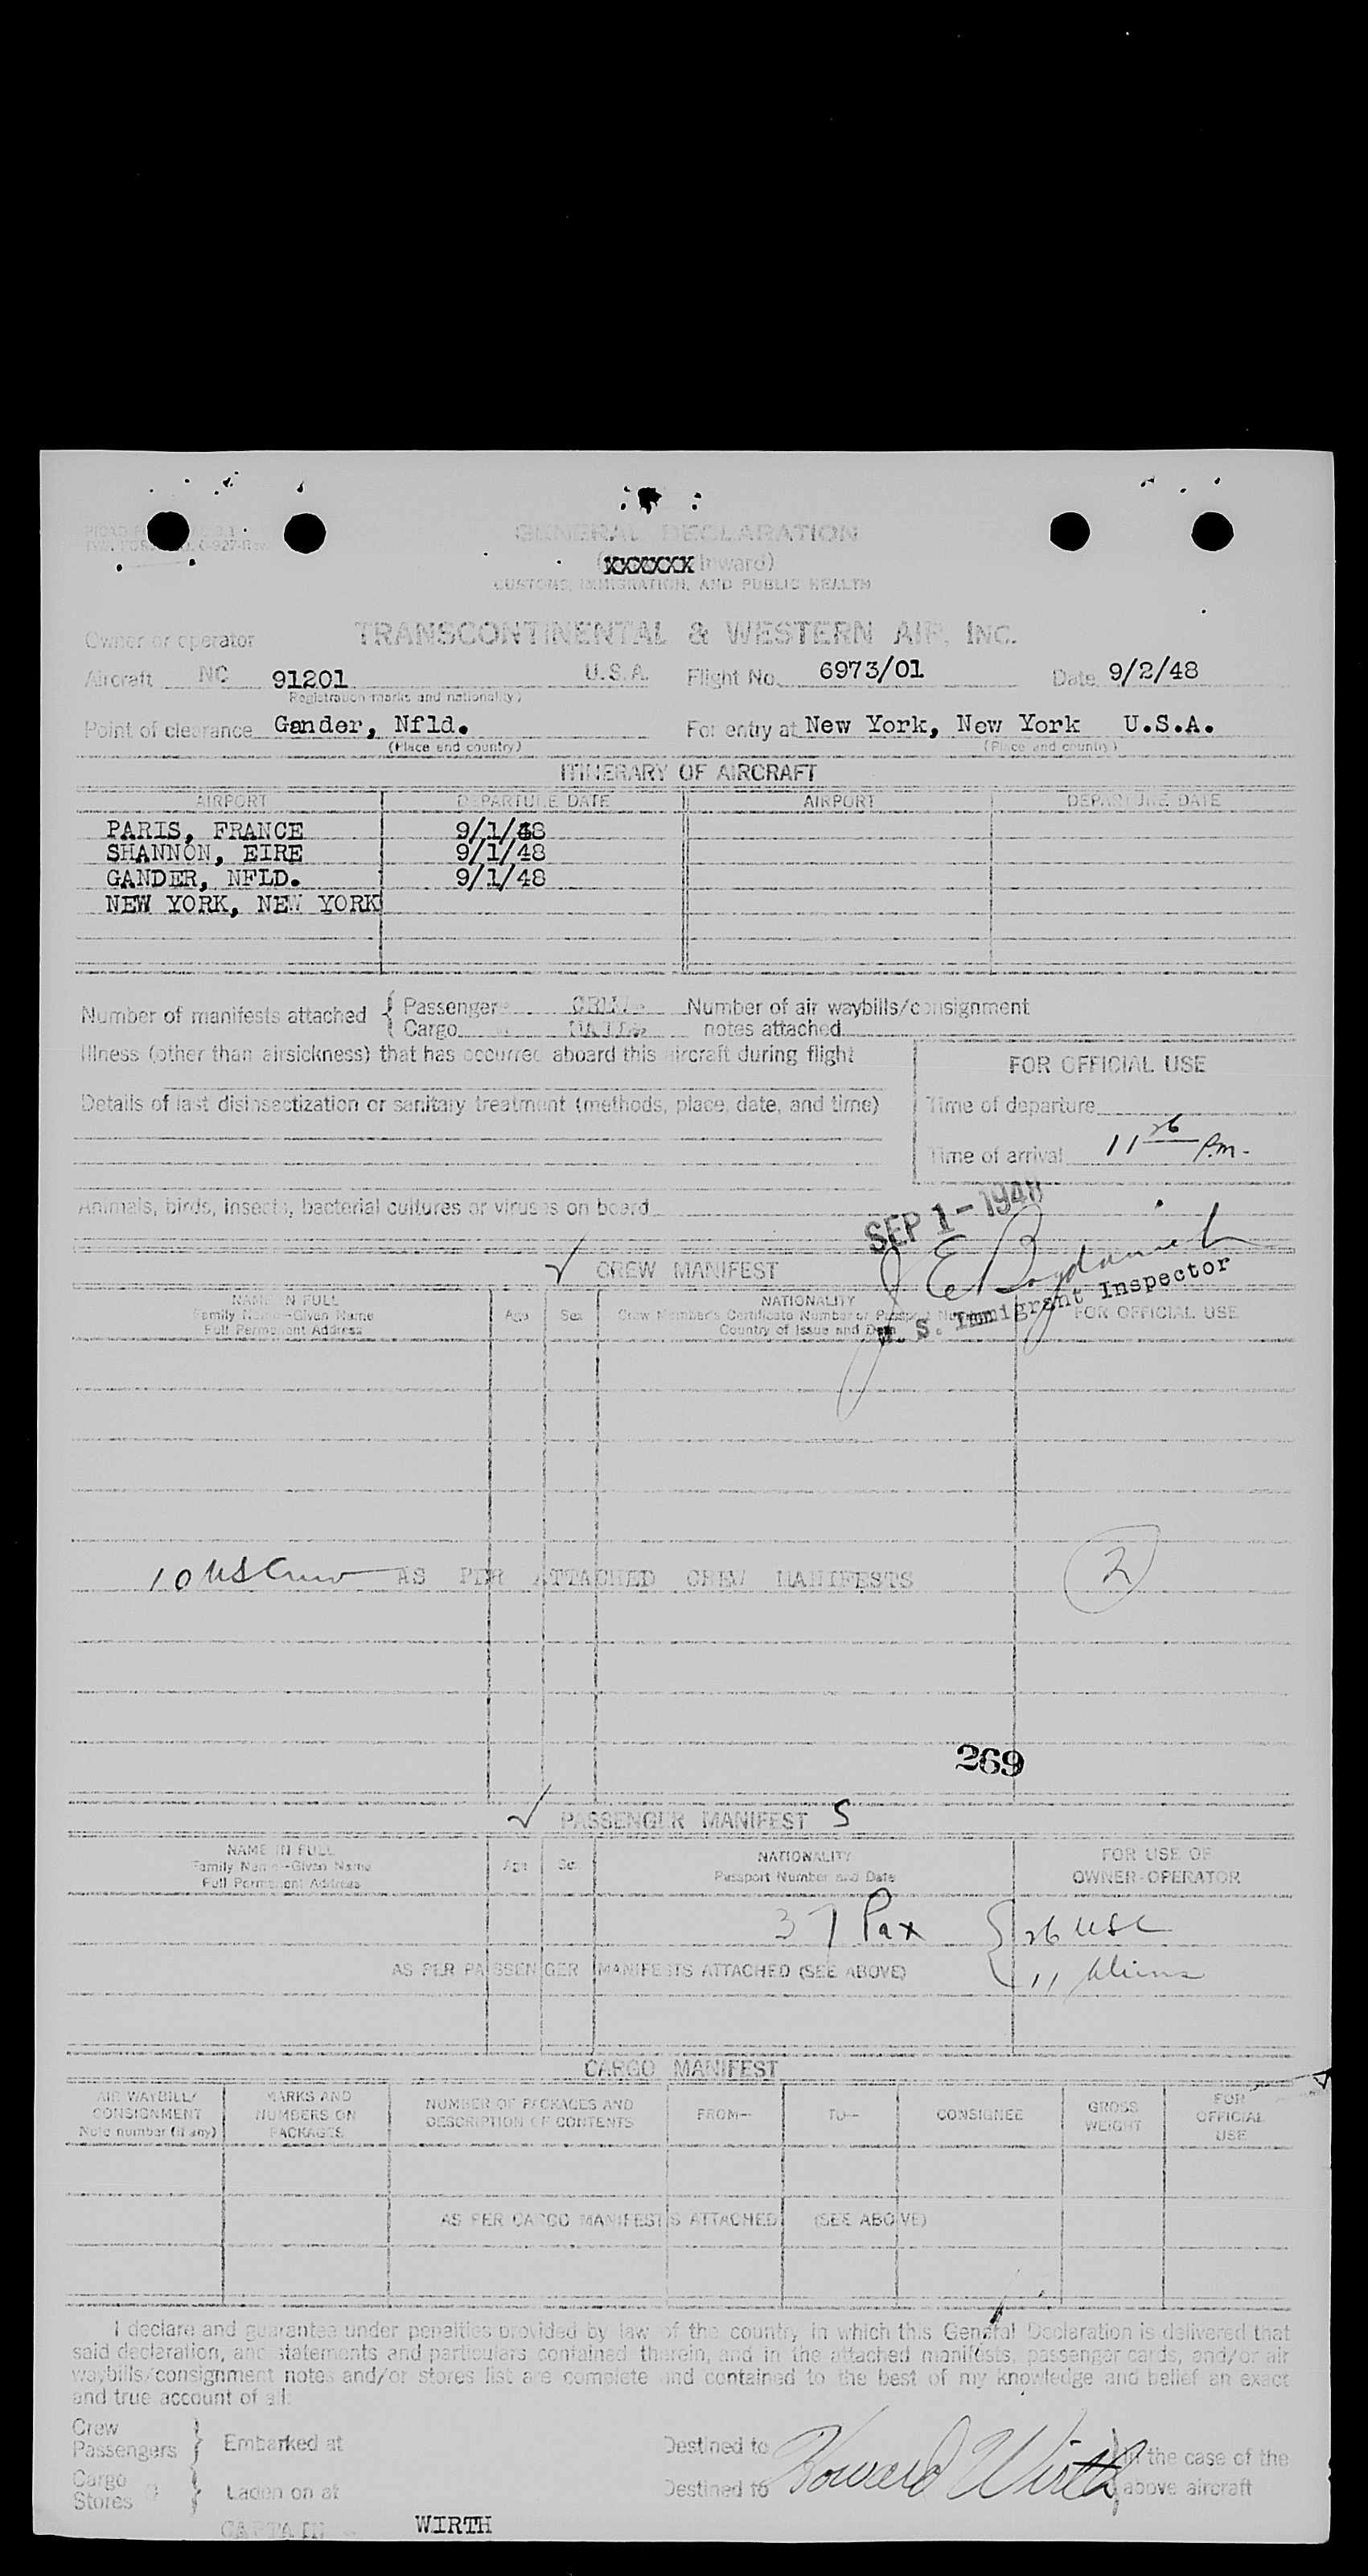 GENERAL DECLARATION
(XXXXXX Inward)
CUSTOMS, IMMIGRATION, AND PUBLIC HEALTH
Owner or operator TRANSCONTINENTAL & WESTERN AIR, INC.
Aircraft NC 91201 U.S.A. Flight No. 6973/01 Date 9/2/48
(Registration marks and nationality)
Point of clearance Gander, Nfld. For entry at New York, New York U.S.A.
(Place and country) (Place and country)
ITINERARY OF AIRCRAFT
AIRPORT DEPARTURE DATE AIRPORT DEPARTURE DATE
PARIS, FRANCE 9/1/48
SHANNON, EIRE 9/1/48
GANDER, NFLD. 9/1/48
NEW YORK, NEW YORK
Number of manifests attached { Passenger CREW Number of air waybills/consignment
Cargo notes attached
Illness (other than airsickness) that has occurred aboard this aircraft during flight
FOR OFFICIAL USE
Details of last disinsectization or sanitary treatment (methods, place, date, and time)
Time of departure
Time of arrival 11 26 P.m.
Animals, birds, insects, bacterial cultures or viruses on board
SEP 1-1948
✓ CREW MANIFEST
U. S. Immigrant Inspector
NAME IN FULL
Family Name—Given Name
Full Permanent Address
Age Sex
NATIONALITY
Crew Member's Certificate Number or Passport Number
Country of Issue and Date
FOR OFFICIAL USE
10 US Crew AS PER ATTACHED CREW MANIFESTS 2
269
✓ PASSENGER MANIFEST S
NAME IN FULL
Family Name—Given Name
Full Permanent Address
Age Sex
NATIONALITY
Passport Number and Date
FOR USE OF
OWNER-OPERATOR
37 Pax { 26 USC
AS PER PASSENGER MANIFESTS ATTACHED (SEE ABOVE) 11 Aliens
CARGO MANIFEST
AIR WAYBILL/
CONSIGNMENT
Note number (if any)
MARKS AND
NUMBERS ON
PACKAGES
NUMBER OF PACKAGES AND
DESCRIPTION OF CONTENTS
FROM—
TO—
CONSIGNEE
GROSS
WEIGHT
FOR
OFFICIAL
USE
AS PER CARGO MANIFESTS ATTACHED (SEE ABOVE)
I declare and guarantee under penalties provided by law of the country in which this General Declaration is delivered that
said declaration, and statements and particulars contained therein, and in the attached manifests, passenger cards, and/or air
waybills/consignment notes and/or stores list are complete and contained to the best of my knowledge and belief an exact
and true account of all:
Crew
Passengers } Embarked at Destined to Howard Wirth } in the case of the
Cargo
Stores } Laden on at Destined to above aircraft
CAPTAIN WIRTH